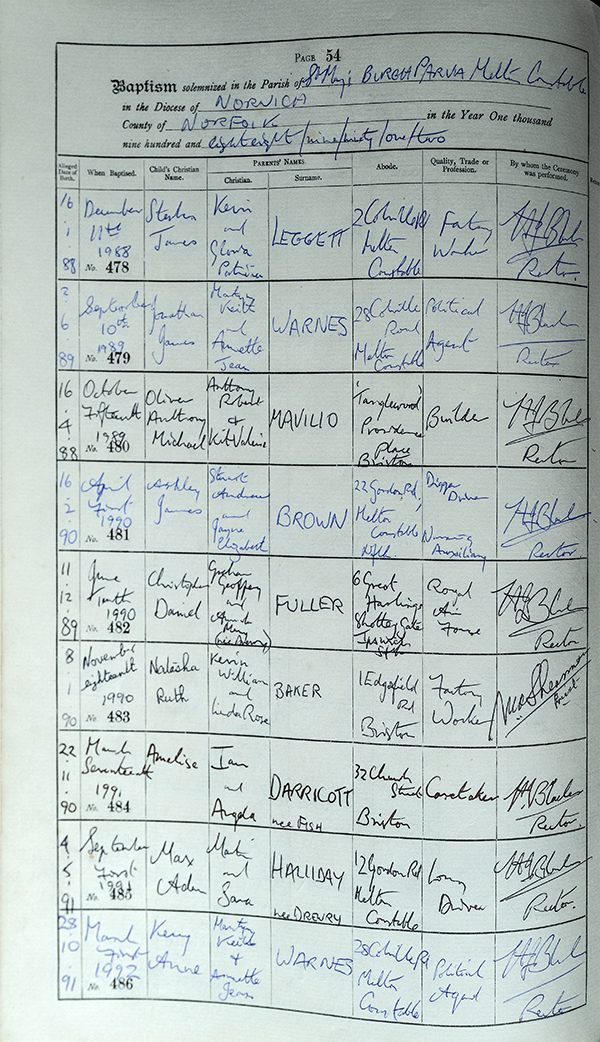 PAGE 54
Baptism solemnized in the Parish of St Mary's BURGH PARVA Melton Constable
in the Diocese of NORWICH
County of NORFOLK in the Year One thousand
nine hundred and eighty eight/nine/ninety/one/two
Alleged Date of Birth.
When Baptised.
Child's Christian Name.
PARENTS' NAMES.
Christian.
Surname.
Abode.
Quality, Trade or Profession.
By whom the Ceremony was performed.
16
1
88
December
11th
1988
No. 478
Stephen
James
Kevin
and
Gloria
Patricia
LEGGETT
2 Colville Rd
Melton
Constable
Factory
Worker
Rector.
2
6
89
September
10th
1989
No. 479
Jonathan
James
Martyn
Keith
and
Annette
Jean
WARNES
28 Colville
Road
Melton
Constable
Political
Agent
Rector
16
4
88
October
Fifteenth
1989
No. 480
Oliver
Anthony
Michael
Anthony
Robert
&
Kit Valerie
MAVILIO
'Tanglewood'
Providence
Place
Briston
Builder
Rector
16
2
90
April
First
1990
No. 481
Ashley
James
Stuart
Andrew
and
Jayne
Elizabeth
BROWN
22 Gordon Rd,
Melton
Constable
Nflk.
Digger
Driver
Nursing
Auxiliary
Rector
11
12
89
June
Tenth
1990
No. 482
Christopher
Daniel
Graham
Geoffrey
and
FULLER
6 Great
Harlings
Shotley Gate
Ipswich
Royal
Air
Force
Rector
8
1
90
November
eighteenth
1990
No. 483
Natasha
Ruth
Kevin
William
and
Linda Rose
BAKER
1 Edgefield
Rd
Briston
Factory
Worker
Priest
22
11
90
March
Seventeenth
1991
No. 484
Amelise
Ian
and
Angela
DARRICOTT
nee FISH
32 Church
Street
Briston
Caretaker
Rector.
4
5
91
September
First
1991
No. 485
Max
Adam
Martin
and
Sara
HALLIDAY
nee DREWRY
12 Gordon Rd
Melton
Constable
Lorry
Driver
Rector.
28
10
91
March
First
1992
No. 486
Kerry
Anne
Martyn
Keith
&
Annette
Jean
WARNES
28 Colville Rd
Melton
Constable
Political
Agent
Rector